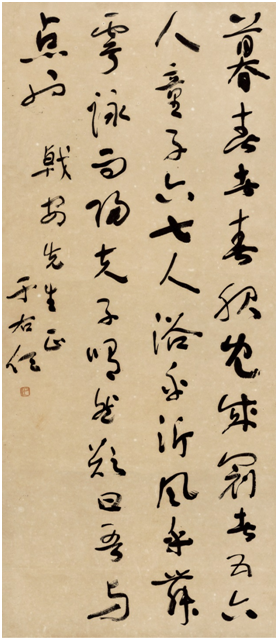 暮春者春服既成冠者五六
人童子六七人浴乎沂風乎舞
雩詠而歸夫子喟然歎曰吾与
点也
先生正
于右任